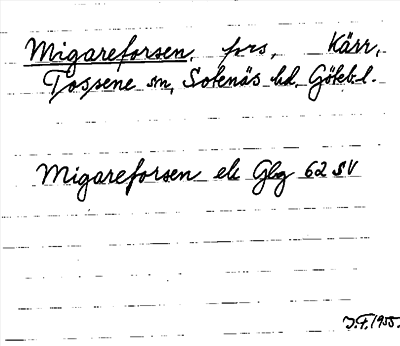 Migareforsen, fors, Kärr,
Tossene sn, Sotenäs hd, Göteb.l.
Migareforsen ek Glg 62 SV
J.F. 1955.